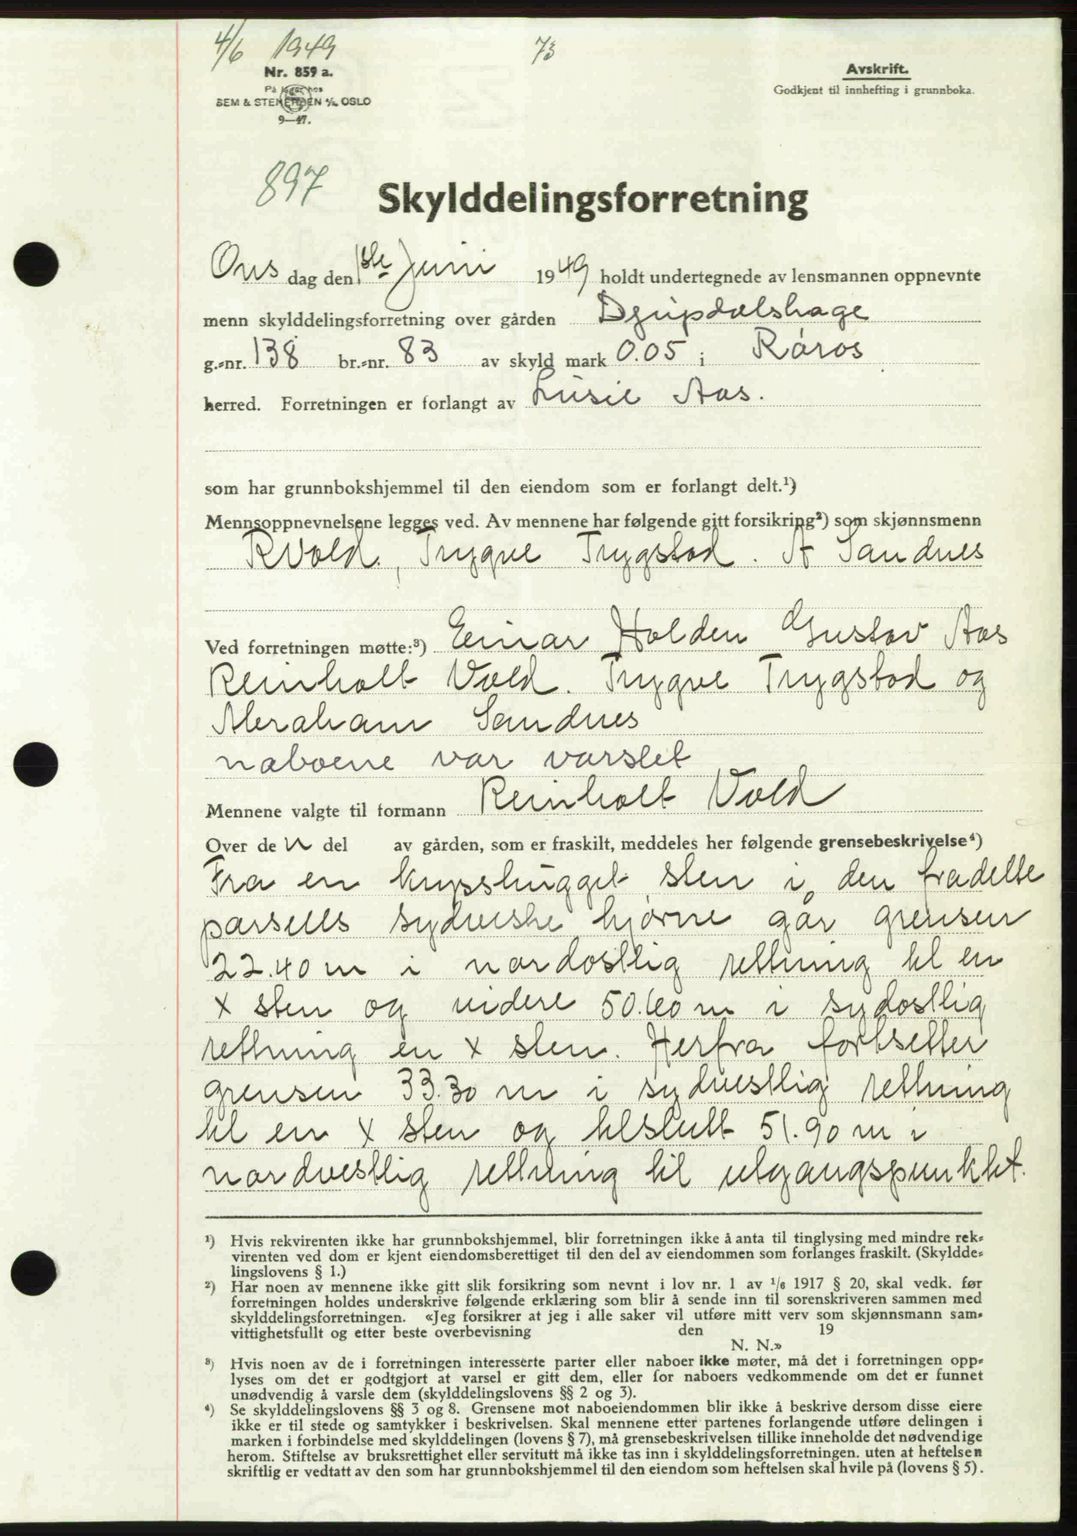 4/6 1949 73
Nr. 859 a.
På lager hos
SEM & STENERSEN A/S, OSLO
9—47.
Avskrift.
Godkjent til innhefting i grunnboka.
897
Skylddelingsforretning
Ons dag den 1ste Juni 1949 holdt undertegnede av lensmannen oppnevnte
menn skylddelingsforretning over gården Djupdalshage
g.-nr. 138 br.-nr. 83 av skyld mark 0.05 i Røros
herred. Forretningen er forlangt av Lusie Aas.
som har grunnbokshjemmel til den eiendom som er forlangt delt.¹)
Mennsoppnevnelsene legges ved. Av mennene har følgende gitt forsikring²) som skjønnsmenn
R Vold, Trygve Trygstad. A Sandnes
Ved forretningen møtte:³) Einar Holden Gustav Aas
Reinholt Vold. Trygve Trygstad og
Abraham Sandnes
naboene var varslet
Mennene valgte til formann Reinholt Vold
Over de n del av gården, som er fraskilt, meddeles her følgende grensebeskrivelse⁴)
Fra en krysshugget sten i den fradelte
parsells sydvestre hjørne går grensen
22.40 m i nordostlig rettning til en
x sten og videre 50.60 m i sydostlig
rettning en x sten. Herfra fortsetter
grensen 33.30 m i sydvestlig rettning
til en x sten og tilslutt 51.90 m i
nordvestlig rettning til utgangspunktet.
¹) Hvis rekvirenten ikke har grunnbokshjemmel, blir forretningen ikke å anta til tinglysing med mindre rek-
virenten ved dom er kjent eiendomsberettiget til den del av eiendommen som forlanges fraskilt. (Skyldde-
lingslovens § 1.)
²) Har noen av mennene ikke gitt slik forsikring som nevnt i lov nr. 1 av 1/6 1917 § 20, skal vedk. før
forretningen holdes underskrive følgende erklæring som blir å sende inn til sorenskriveren sammen med
skylddelingsforretningen. «Jeg forsikrer at jeg i alle saker vil utføre mitt verv som skjønnsmann sam-
vittighetsfullt og etter beste overbevisning den 19
N. N.»
³) Hvis noen av de i forretningen interesserte parter eller naboer ikke møter, må det i forretningen opp-
lyses om det er godtgjort at varsel er gitt dem, eller for naboers vedkommende om det er funnet
unødvendig å varsle dem (skylddelingslovens §§ 2 og 3).
⁴) Se skylddelingslovens §§ 3 og 8. Grensene mot naboeiendommen blir ikke å beskrive dersom disse eiere
ikke er til stede og samtykker i beskrivelsen. Skal mennene etter partenes forlangende utføre delingen i
marken i forbindelse med skylddelingen (lovens § 7), må grensebeskrivelsen tillike inneholde det nødvendige
herom. Stiftelse av bruksrettighet eller servitutt må ikke tas inn i skylddelingsforretningen, uten at heftelsen
skriftlig er vedtatt av den som har grunnbokshjemmel til den eiendom som heftelsen skal hvile på (lovens § 5).